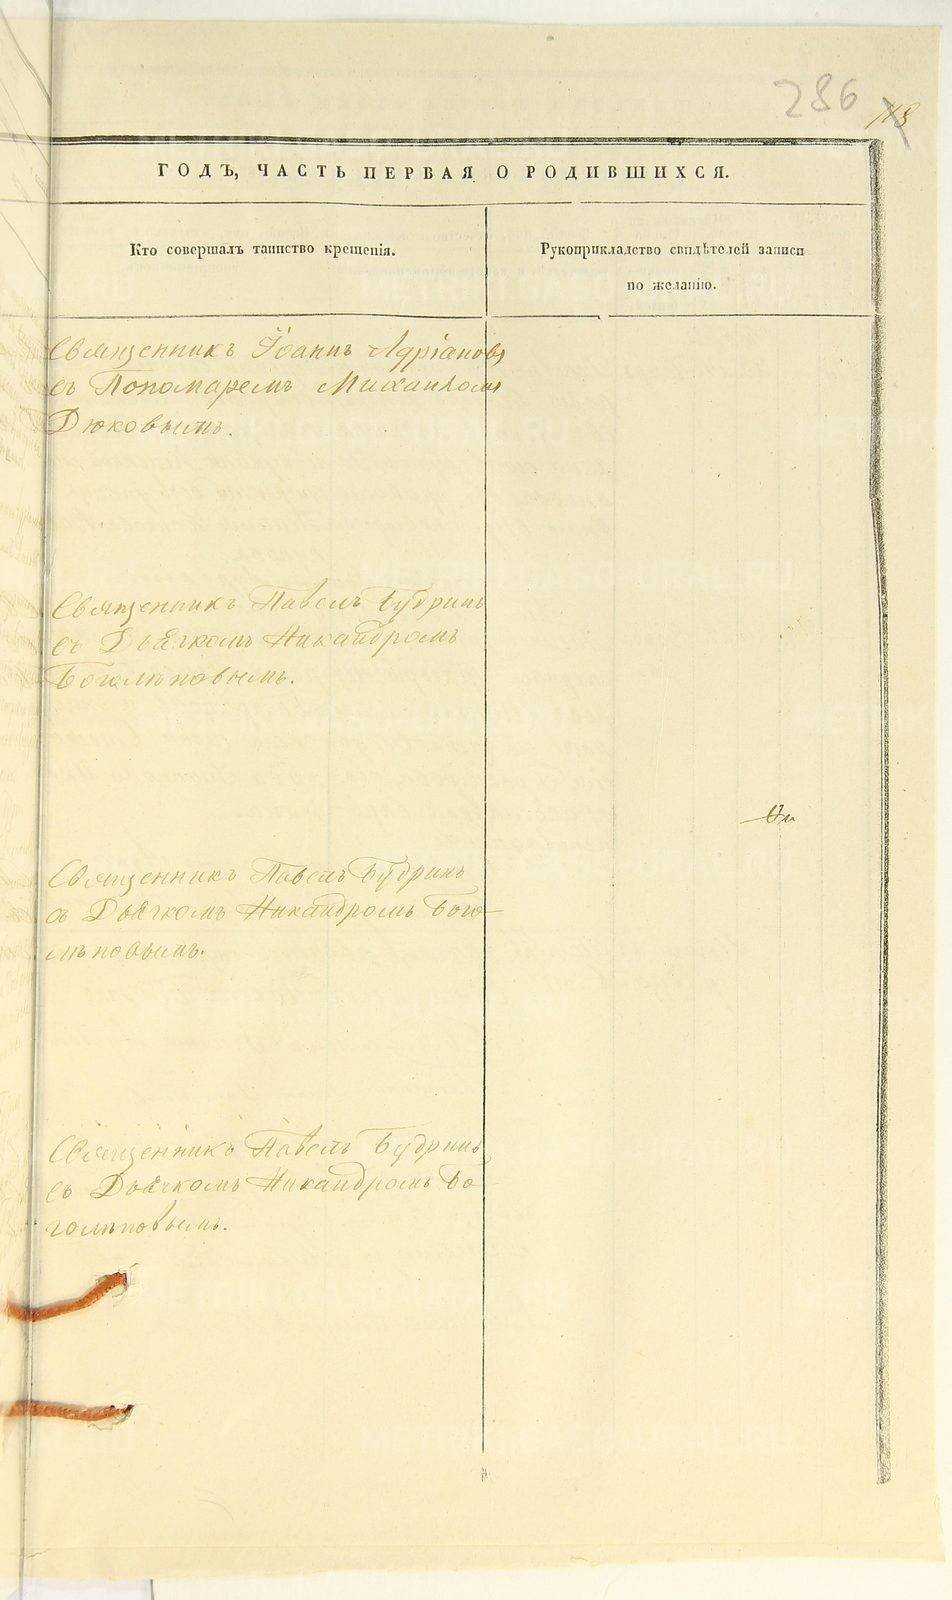 286
118
ГОДЪ, ЧАСТЬ ПЕРВАЯ О РОДИВШИХСЯ.
Кто совершалъ таинство крещенія.
Рукоприкладство свидѣтелей записи
по желанію.
Священникъ Іоаннъ Адріановъ
съ Пономаремъ Михаиломъ
Дюковымъ.
Священникъ Павелъ Будринъ
съ Дьячкомъ Никандромъ
Боголѣповымъ.
Священникъ Павелъ Будринъ
съ Дьячкомъ Никандромъ Бого-
лѣповымъ.
Священникъ Павелъ Будринъ
съ Дьячкомъ Никандромъ Бо
голѣповымъ.
METRIKI.GASO-URAL.RU